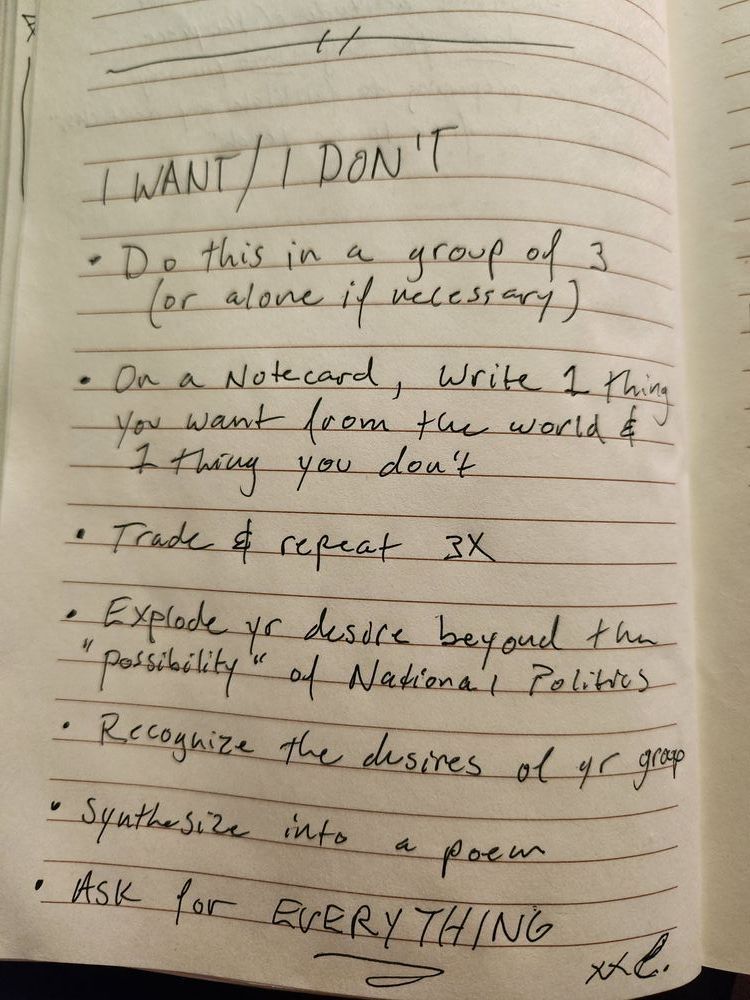 I WANT / I DON'T
• Do this in a group of 3
(or alone if necessary)
• On a Notecard, Write 1 thing
you want from the world &
1 thing you don't
• Trade & repeat 3X
• Explode yr desire beyond the
"possibility" of National Politics
• Recognize the desires of yr group
• Synthesize into a poem
• ASK for EVERYTHING
xx